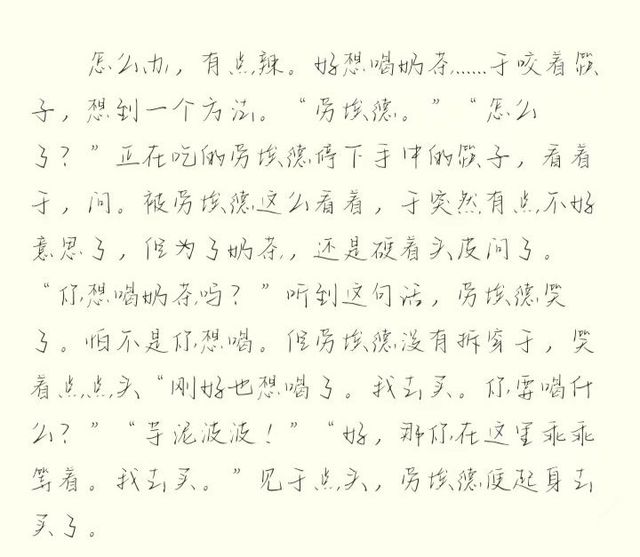 怎么办，有点辣。好想喝奶茶……于咬着筷
子，想到一个方法。“劳埃德。”“怎么
了？”正在吃的劳埃德停下手中的筷子，看着
于，问。被劳埃德这么看着，于突然有点不好
意思了，但为了奶茶，还是硬着头皮问了。
“你想喝奶茶吗？”听到这句话，劳埃德笑
了。怕不是你想喝。但劳埃德没有拆穿于，笑
着点点头“刚好也想喝了。我去买。你要喝什
么？”“芋泥波波！”“好，那你在这里乖乖
等着。我去买。”见于点头，劳埃德便起身去
买了。